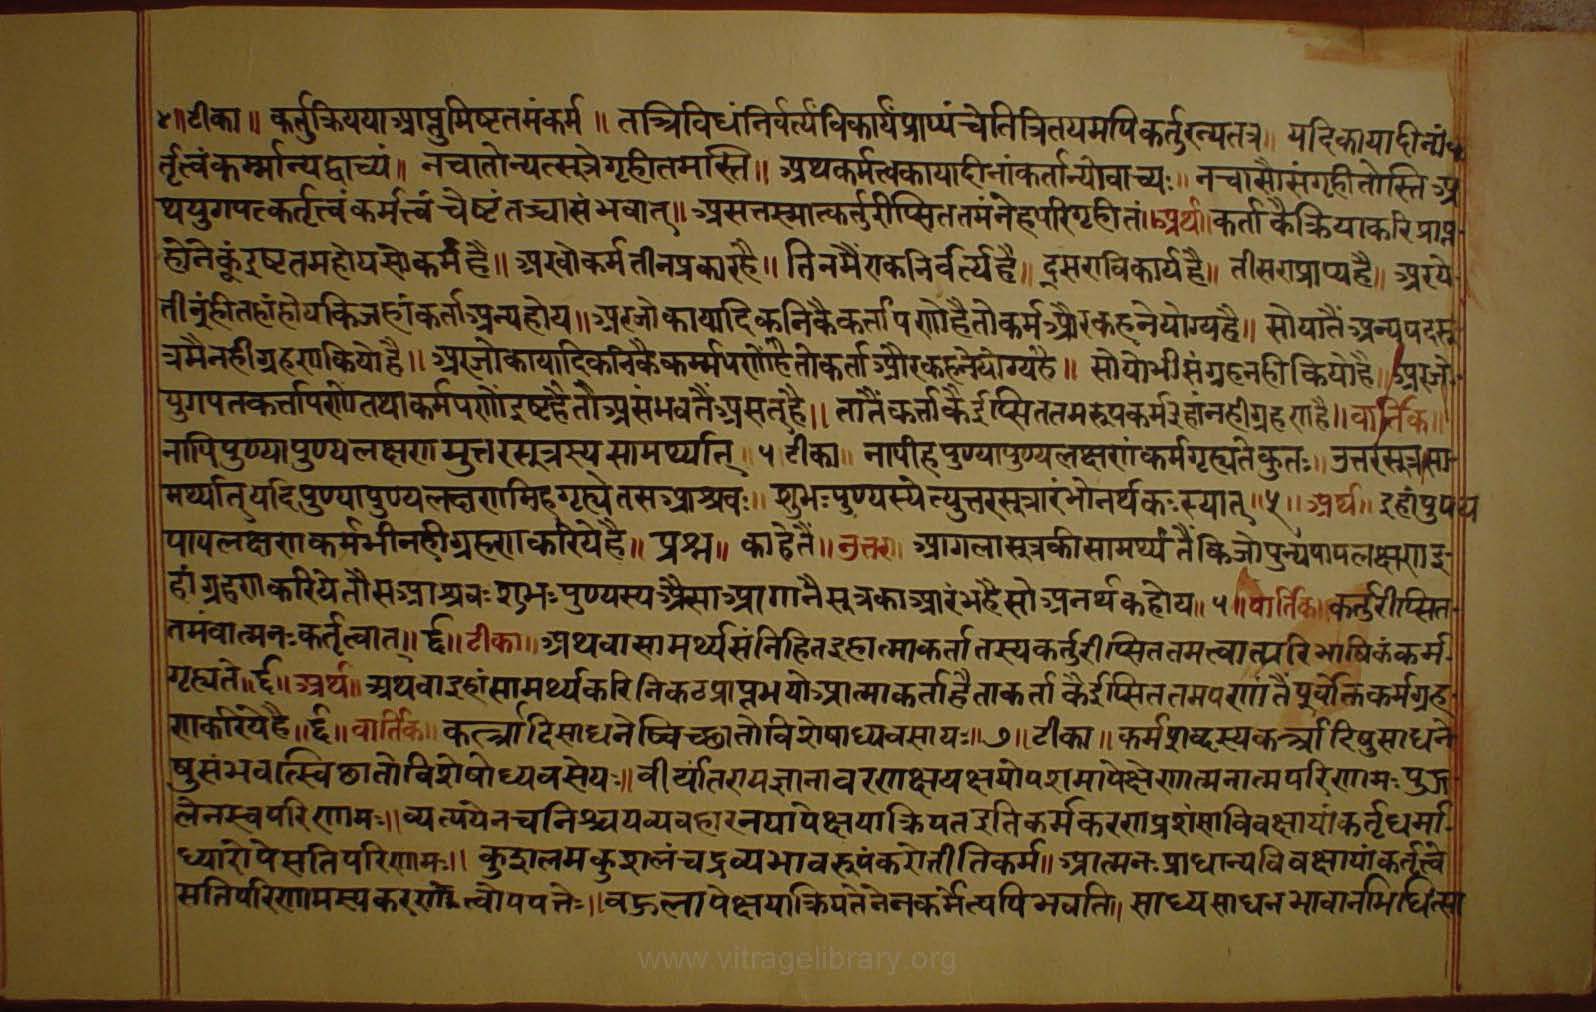 ४॥टीका॥ कर्तुक्रिययाआप्तुमिष्टतमंकर्म॥ तत्त्रिविधंनिर्वर्त्यंविकार्यंप्राप्यंचेतित्रितयमपिकर्तुरन्यतत्र॥ यदिकायादीन्यांक
र्तृत्वंकर्म्मान्यद्वाच्यं॥ नचातोन्यत्सूत्रेगृहीतमस्ति॥ अथकर्मत्वकायादीनांकर्तान्योवाच्यः॥ नचासौसंगृहीतोस्तिअ
थयुगपत्कर्तृत्वंकर्मत्त्वंचेष्टंतच्चासंभवात्॥ असत्तस्मात्कर्तुरीप्सिततमंनेहपरिगृहीतं॥अर्थ॥कर्ताकैक्रियाकरिप्राप्त-
होनेकूंइष्टतमहोयसोकर्महै॥ अरवोकर्मतीनप्रकारहै॥ तिनमैंएकनिर्वर्त्यहै॥ दूसराविकार्यहै॥ तीसराप्राप्यहै॥ अरये-
तीनुंहीतहांहोयकिजहांकर्ताअन्यहोय॥अरजोकायादिकनिकैकर्त्तापणोहैतोकर्मऔरकहनेयोग्यहै॥ सोयातैंअन्यपदसू-
त्रमैनहीग्रहणकियोहै॥ अरजोकायादिकनिकैकर्म्मपणोंहैतोकर्ताऔरकहनेयोग्यहै॥ सोयोभीसंग्रहनहीकियोहै॥अरजो-
युगपतकर्त्तापणोंतथाकर्मपणोंइष्टहैतौअसंभवतैंअसत्है॥ तातैंकर्त्ताकैईप्सिततमरूपकर्मइहांनहीग्रहणहै॥वार्तिक॥
नापिपुण्यापुण्यलक्षणमुत्तरसूत्रस्यसामर्थ्यात् ५ टीका॥ नापीहपुण्यापुण्यलक्षणंकर्मगृह्यतेकुतः॥ उत्तरसूत्रसा-
मर्थ्यात्यदिपुण्यापुण्यलक्षणमिहगृह्येतसआश्रवः॥ शुभःपुण्यस्येत्युत्तरसूत्रारंभोनर्थकःस्यात्॥५॥ अर्थ॥ इहांपुण्य
पापलक्षणकर्मभीनहीग्रहणकरियेहै॥ प्रश्न॥ काहेतैं॥उत्तर॥ आगलासूत्रकीसामर्थ्यतैंकिजोपुन्यपापलक्षणइ-
हांग्रहणकरियेतौसआश्रवःशुभःपुण्यस्यअैसाआगानैसूत्रकाआरंभहैसोअनर्थकहोय॥५॥वार्तिक॥कर्तुरीप्सित-
तमंवात्मनःकर्तृत्वात्॥६॥टीका॥अथवासामर्थ्यसंनिहितइहात्माकर्तातस्यकर्तुरीप्सिततमत्वात्परिभाषिकंकर्म-
गृह्यते॥६॥अर्थ॥अथवाइहांसामर्थ्यकरिनिकटप्राप्तभयोआत्माकर्ताहैताकर्ताकैईप्सिततमपणांतैंपूर्वोक्तिकर्मग्रह-
णकरियेहै॥६॥वार्तिक॥कर्त्रादिसाधनेष्विच्छातोविशेषाध्यवसायः॥७॥टीका॥कर्मशब्दस्यकर्त्रादिषुसाधने
षुसंभवत्स्विछातोविशेषोध्यवसेयः॥वीर्यांतरायज्ञानावरणक्षयक्षयोपशमापेक्षेणात्मनात्मपरिणामःपुद्ग
लेनस्वपरिणामः॥व्यत्ययेनचनिश्चयव्यवहारनयापेक्षयाक्रियतइतिकर्मकरणप्रशंसाविवक्षायांकर्तृधर्मा-
ध्यारोपेसतिपरिणामः॥ कुशलमकुशलंचद्रव्यभावरूपंकरोतीतिकर्म॥आत्मनःप्राधान्यविवक्षायांकर्तृत्वे
सतिपरिणामस्यकरणत्वोपपत्तेः॥बहुलापेक्षयाक्रियतेनेनकर्मेत्यपिभवति॥ साध्यसाधनभावानभिधित्सा
www.vitragelibrary.org